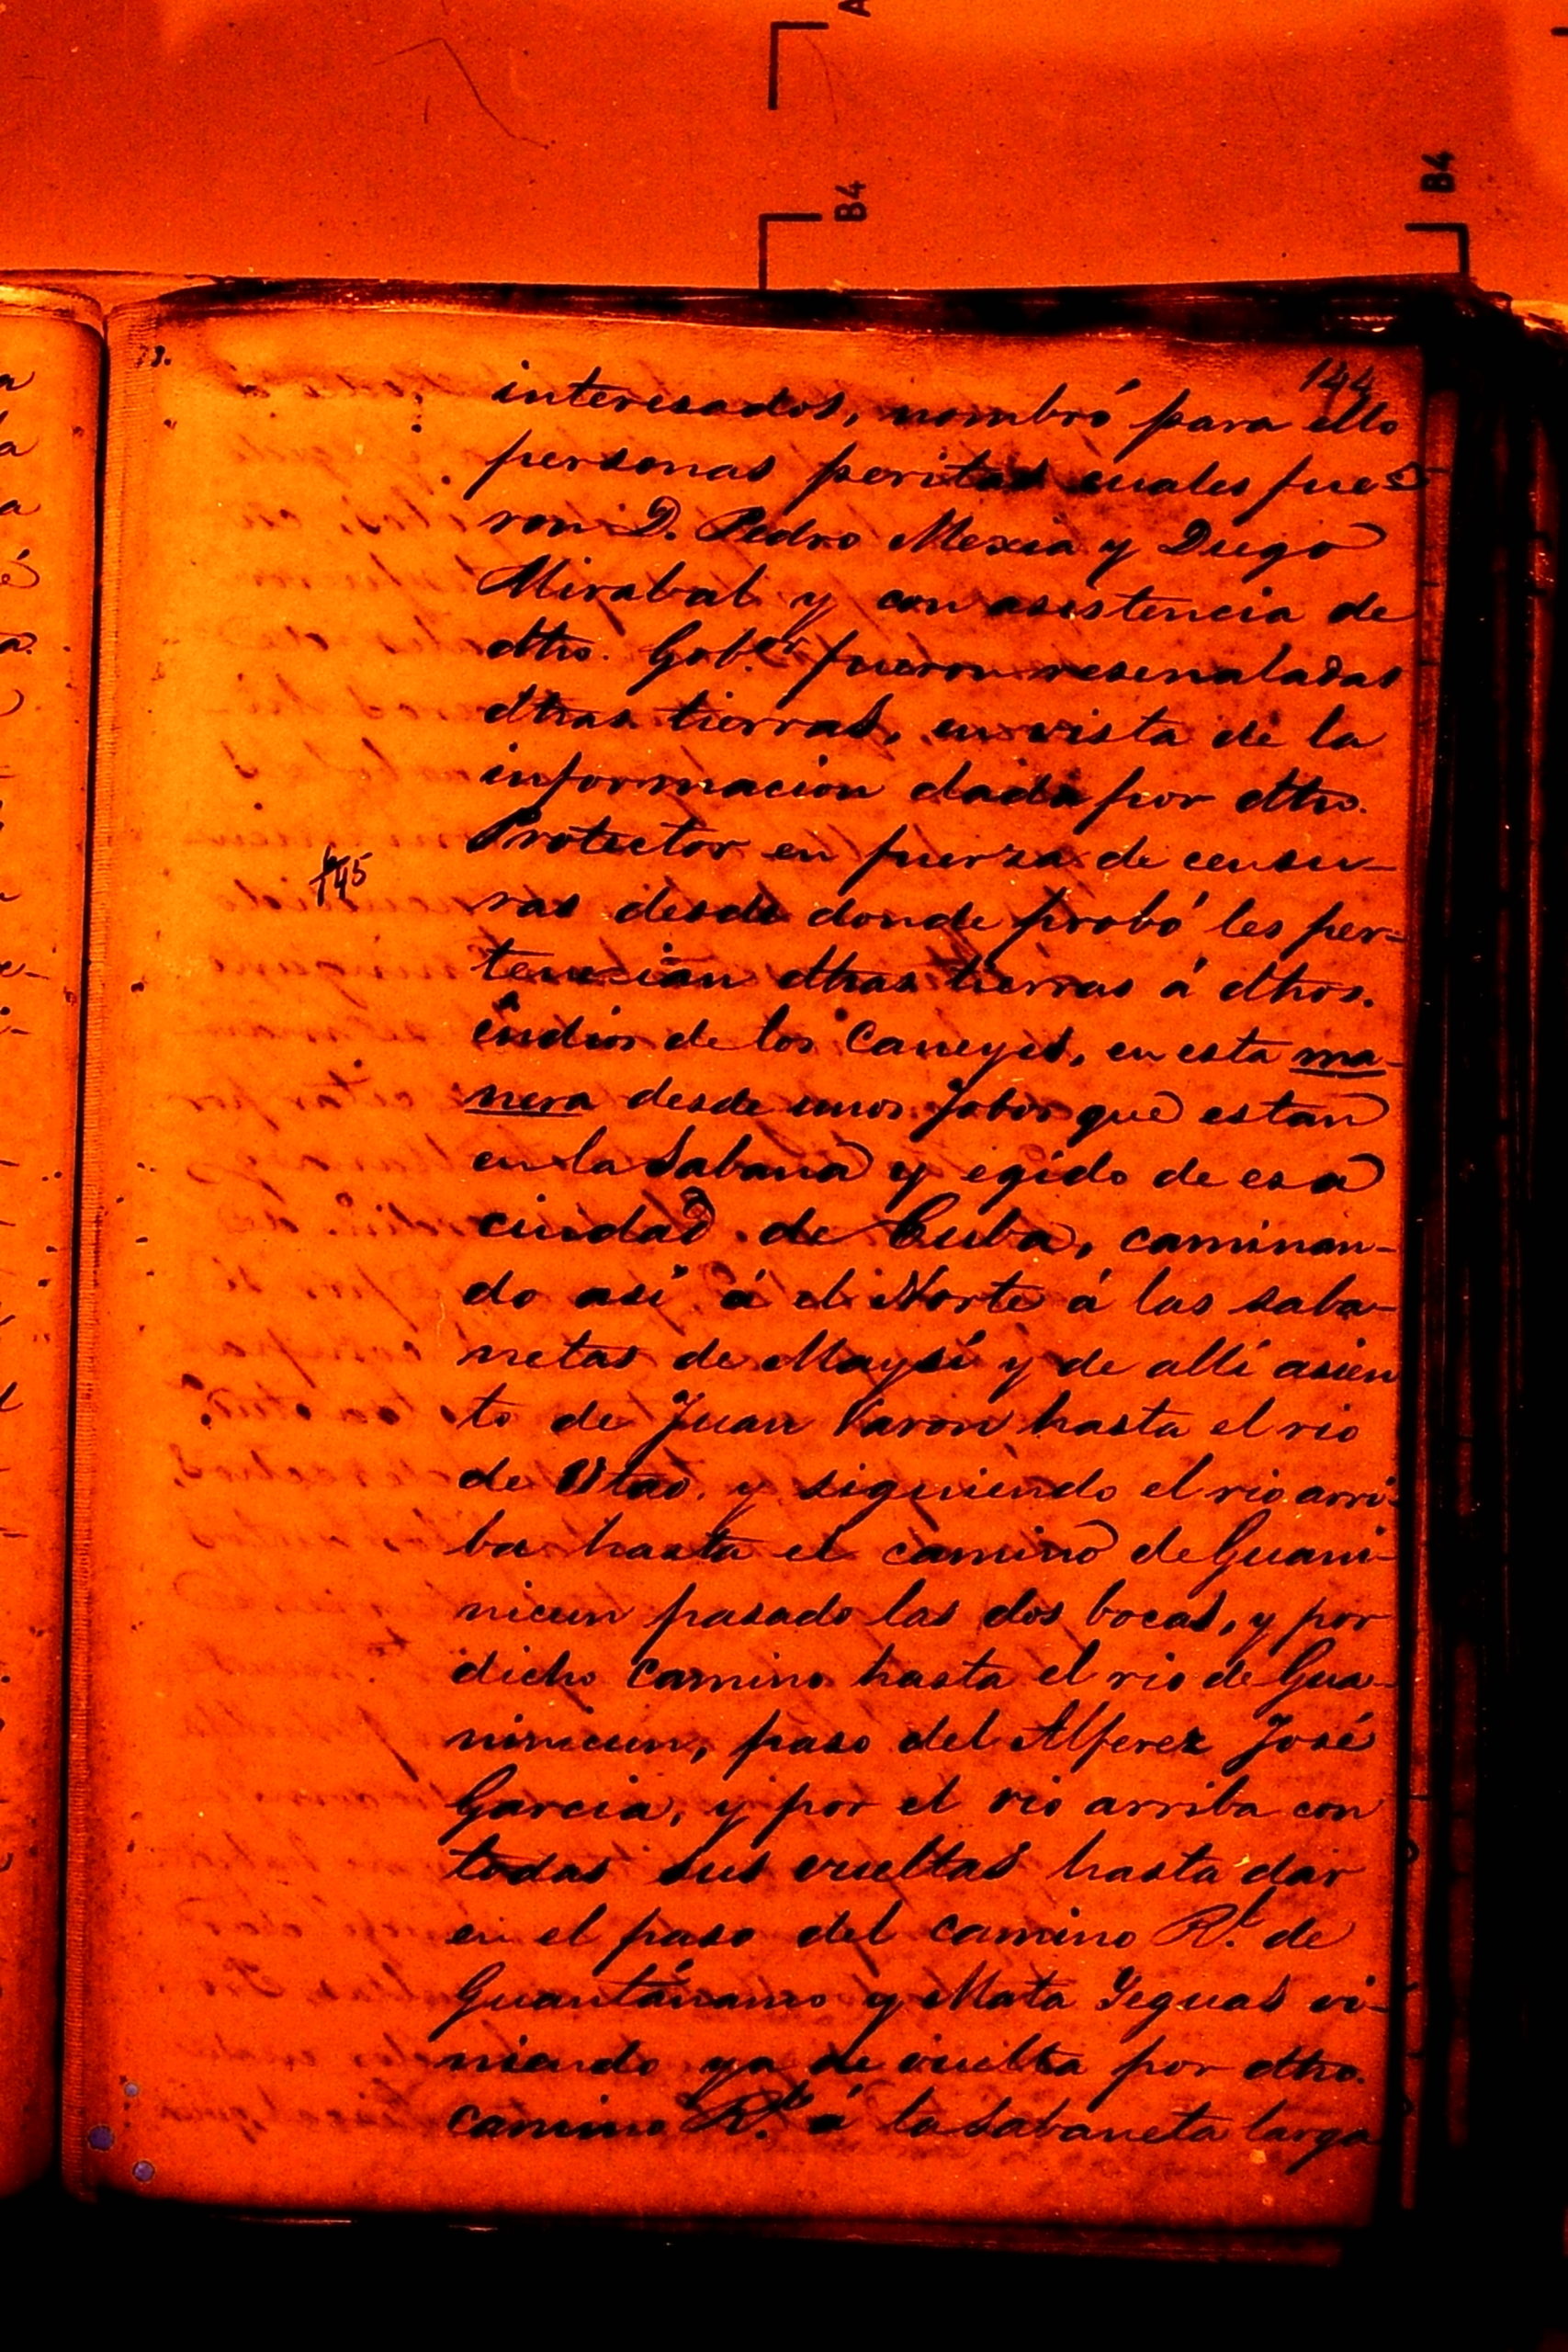 A
B4
B4
144
interesados, nombró para ello
personas peritas cuales fue-
ron D. Pedro Mexia y Diego
Mirabal y con asistencia de
dtho. Gob.or fueron resenaladas
dthas tierras, en vista de la
informacion dada por dtho.
Protector en fuerza de censu-
145
ras desde donde probó les per-
tenecian dthas tierras á dthos.
indios de los Caneyes, en esta ma-
nera desde unos Jobos que estan
en la Sabana y egido de esa
ciudad de Cuba, caminan-
do asi á el Norte á las saba-
netas de Maysí y de allí asien
to de Juan Varon hasta el rio
de Utao, y siguiendo el rio arri-
ba hasta el camino de Guani-
nicun pasado las dos bocas, y por
dicho camino hasta el rio de Gua-
ninicun, paso del Alferez José
Garcia, y por el rio arriba con
todas sus vueltas hasta dar
en el paso del camino R.l de
Guantánamo y Mata Yeguas vi-
niendo ya de vuelta por dtho.
camino R.l á la Sabaneta larga